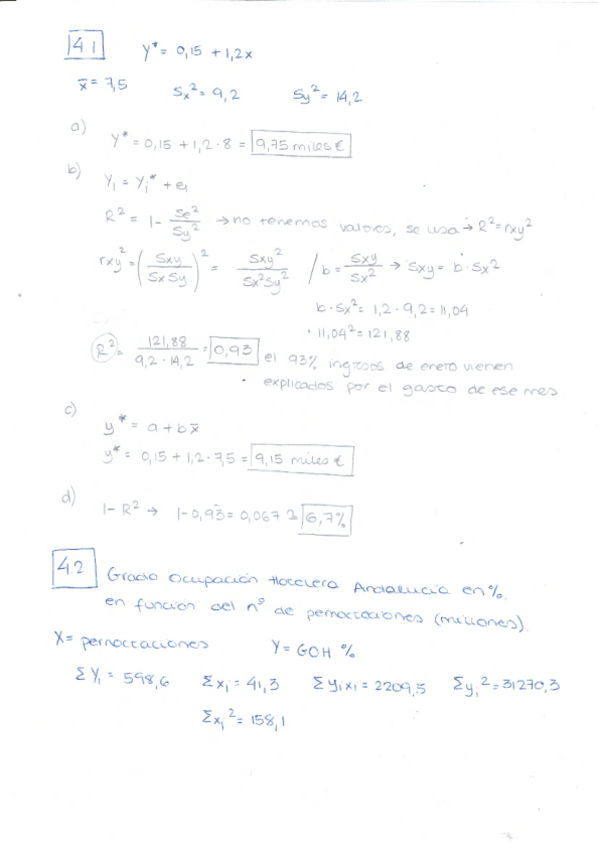 4.1 Y* = 0,15 + 1,2x
x̄ = 7,5 Sx² = 9,2 Sy² = 14,2
a)
Y* = 0,15 + 1,2·8 = 9,75 miles €
b)
Yi = Yi* + ei
R² = 1 - Se²/Sy² → no tenemos valores, se usa → R² = rxy²
rxy² = (Sxy/SxSy)² = Sxy²/Sx²Sy² / b = Sxy/Sx² → Sxy = b·Sx²
b·Sx² = 1,2·9,2 = 11,04
· 11,04² = 121,88
R² = 121,88/9,2·14,2 = 0,93 el 93% ingresos de enero vienen
· explicados por el gasto de ese mes
c)
y* = a + bx̄
y* = 0,15 + 1,2·7,5 = 9,15 miles €
d)
1 - R² → 1 - 0,93 = 0,067 → 6,7%
4.2 Grado Ocupación Hotelera Andalucía en %
en función del nº de pernoctaciones (millones).
X = pernoctaciones Y = GOH %
ΣYi = 598,6 Σxi = 41,3 Σyixi = 2209,5 Σyi² = 31270,3
Σxi² = 158,1